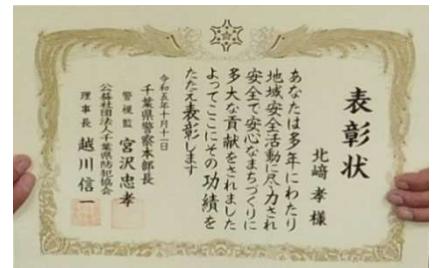 表彰状
北﨑孝様
あなたは多年にわたり
地域安全活動に尽力され
安全で安心なまちづくりに
多大な貢献をされました
よってここにその功績を
たたえ表彰します
令和五年十月十一日
千葉県警察本部長
警視監 宮沢忠孝
公益社団法人千葉県防犯協会
理事長 越川信一